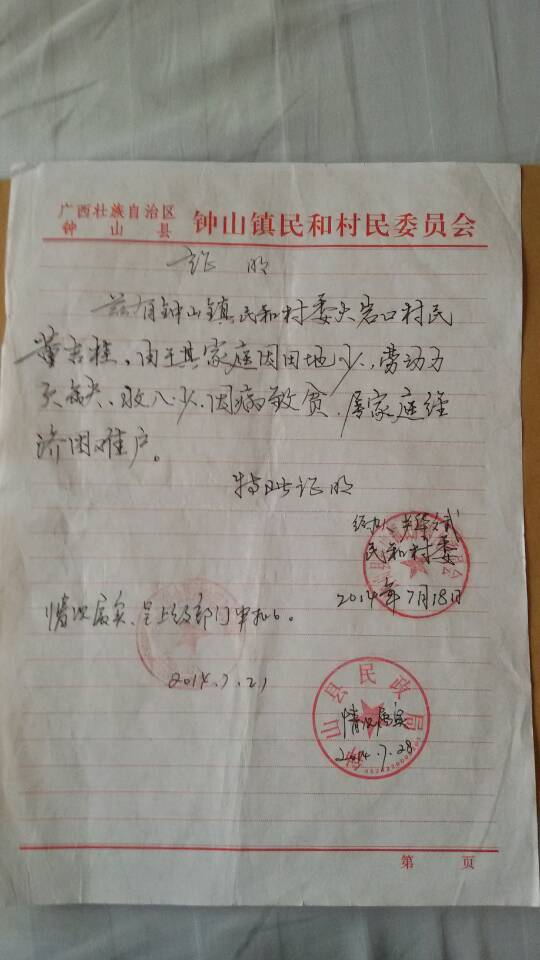 广西壮族自治区
钟山县
钟山镇民和村民委员会
证明
兹有钟山镇民和村委大岩口村民
董吉桂、由于其家庭因田地少、劳动力
欠缺、收入少、因病致贫、属家庭经
济困难户。
特此证明
经办人
民和村委
2014年7月18日
情况属实、呈上级部门审批。
2014.7.21
山县民政局
情况属实
2014.7.28
第 页